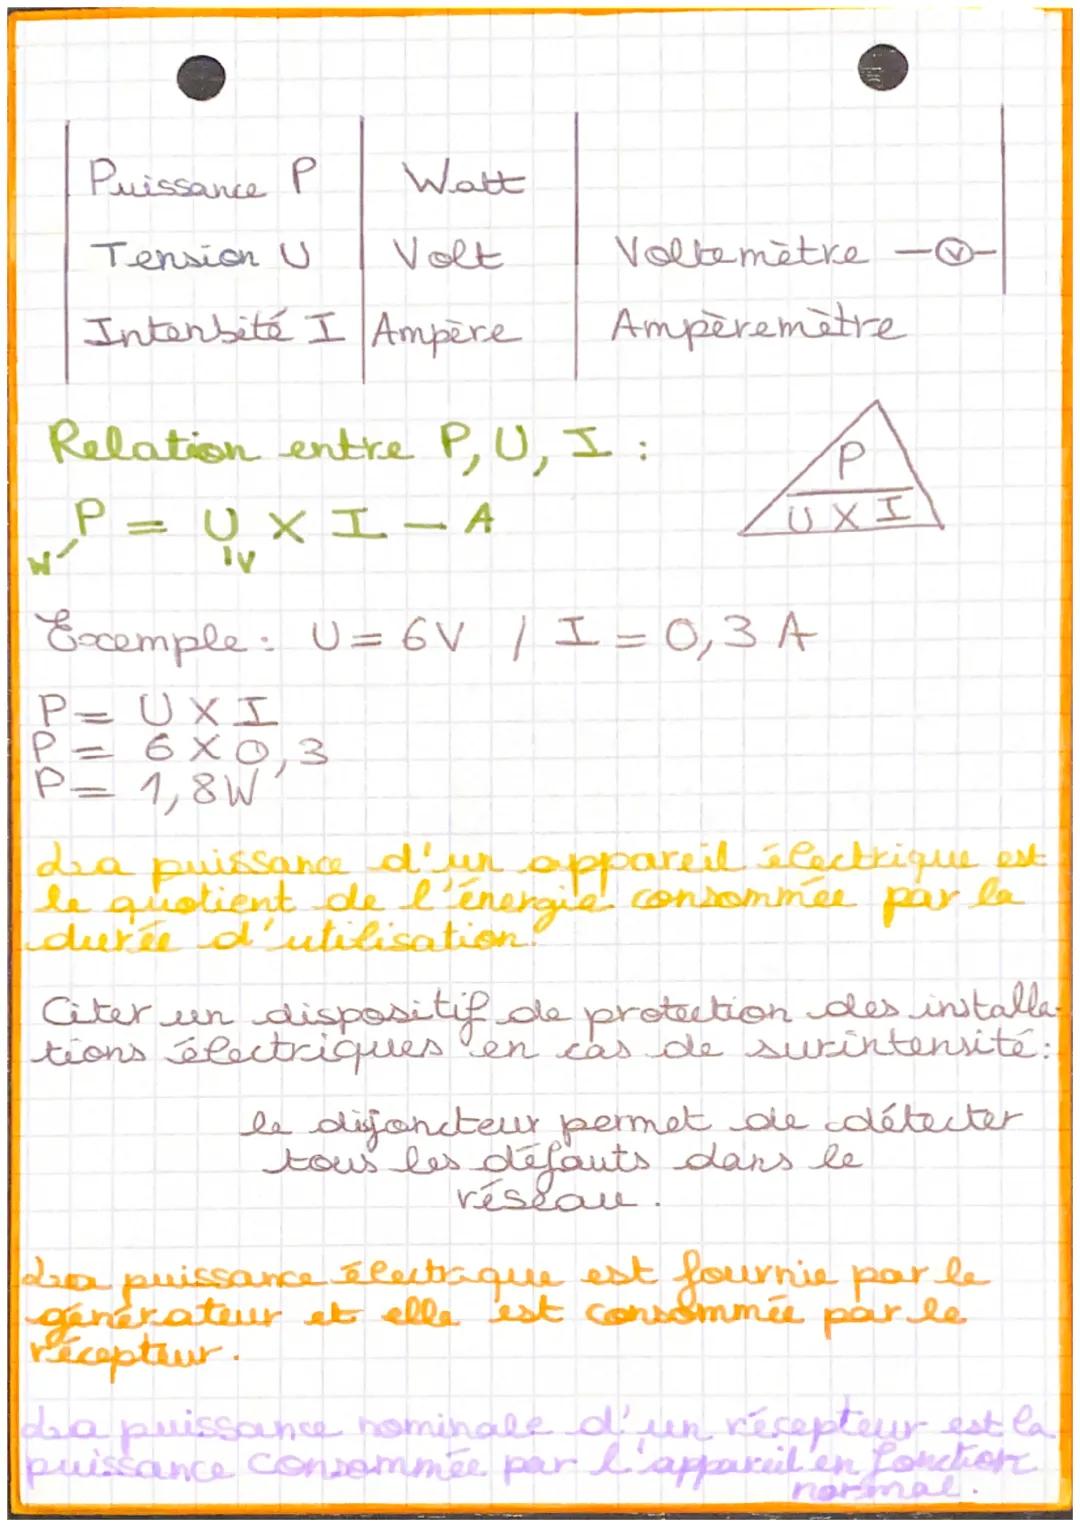 Puissance P Watt
Tension U Volt Voltemètre V
Intensité I Ampère Ampèremètre
Relation entre P, U, I :
P = U X I - A
W V
P
U X I
Exemple : U = 6V / I = 0,3 A
P = U X I
P = 6 X 0,3
P = 1,8W
La puissance d'un appareil électrique est
le quotient de l'énergie consommée par la
durée d'utilisation.
Citer un dispositif de protection des installa-
tions électriques en cas de surintensité :
le disjoncteur permet de détecter
tous les défauts dans le
réseau.
La puissance électrique est fournie par le
générateur et elle est consommée par le
récepteur.
La puissance nominale d'un récepteur est la
puissance consommée par l'appareil en fonction
normal.